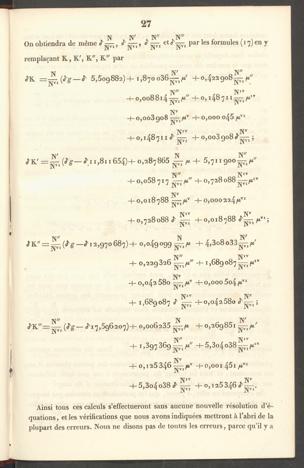 27
On obtiendra de même δ N/Nᵛˢ, δ N′/Nᵛˢ, δ N″/Nᵛˢ et δ N‴/Nᵛˢ par les formules (17) en y
remplaçant K, K′, K″, K‴ par
δK = N/Nᵛˢ (δg − δ 5,509882) + 1,870036 N′/Nᵛˢ μ′ + 0,422908 N″/Nᵛˢ μ″
+ 0,008814 N/Nᵛˢ μ‴ + 0,148711 N′ᵛ/Nᵛˢ μ′ᵛ
+ 0,003908 N‴/Nᵛˢ μᵛ + 0,000045 μᵛˢ
+ 0,148711 δ N′ᵛ/Nᵛˢ + 0,003908 δ Nᵛ/Nᵛˢ ;
δK′ = N/Nᵛˢ (δg − δ 11,811654) + 0,287865 N/Nᵛˢ μ + 5,711900 N″/Nᵛˢ μ″
+ 0,058717 N‴/Nᵛˢ μ‴ + 0,728088 N′ᵛ/Nᵛˢ μ′ᵛ
+ 0,018788 Nᵛ/Nᵛˢ μᵛ + 0,000224 μᵛˢ
+ 0,728088 δ N′ᵛ/Nᵛˢ + 0,018788 δ Nᵛ/Nᵛˢ μᵛˢ ;
δK″ = N/Nᵛˢ (δg − δ 12,970687) + 0,049099 N/Nᵛˢ μ + 4,308033 N′/Nᵛˢ μ′
+ 0,229326 N‴/Nᵛˢ μ‴ + 1,689087 N′ᵛ/Nᵛˢ μ′ᵛ
+ 0,042580 Nᵛ/Nᵛˢ μᵛ + 0,000504 μᵛˢ
+ 1,689087 δ N′ᵛ/Nᵛˢ + 0,042580 δ Nᵛ/Nᵛˢ ;
δK‴ = N/Nᵛˢ (δg − δ 17,596207) + 0,006235 N/Nᵛˢ μ + 0,269851 N′/Nᵛˢ μ′
+ 1,397369 N″/Nᵛˢ μ″ + 5,304038 N′ᵛ/Nᵛˢ μ′ᵛ
+ 0,125346 Nᵛ/Nᵛˢ μᵛ + 0,001451 μᵛˢ
+ 5,304038 δ N′ᵛ/Nᵛˢ + 0,125346 δ Nᵛ/Nᵛˢ.
Ainsi tous ces calculs s'effectueront sans aucune nouvelle résolution d'é-
quations, et les vérifications que nous avons indiquées mettront à l'abri de la
plupart des erreurs. Nous ne disons pas de toutes les erreurs, parce qu'il y a